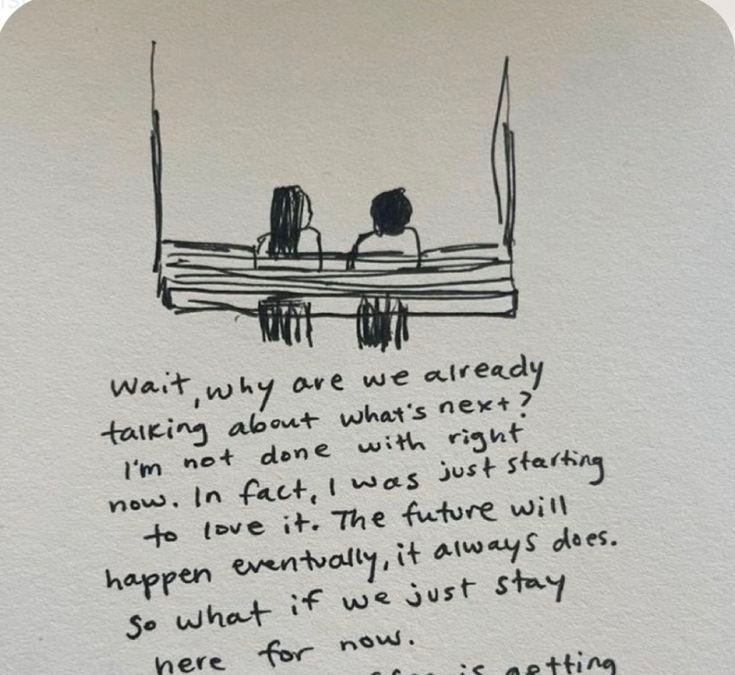 Wait, why are we already
talking about what's next?
I'm not done with right
now. In fact, I was just starting
to love it. The future will
happen eventually, it always does.
So what if we just stay
here for now.
is getting